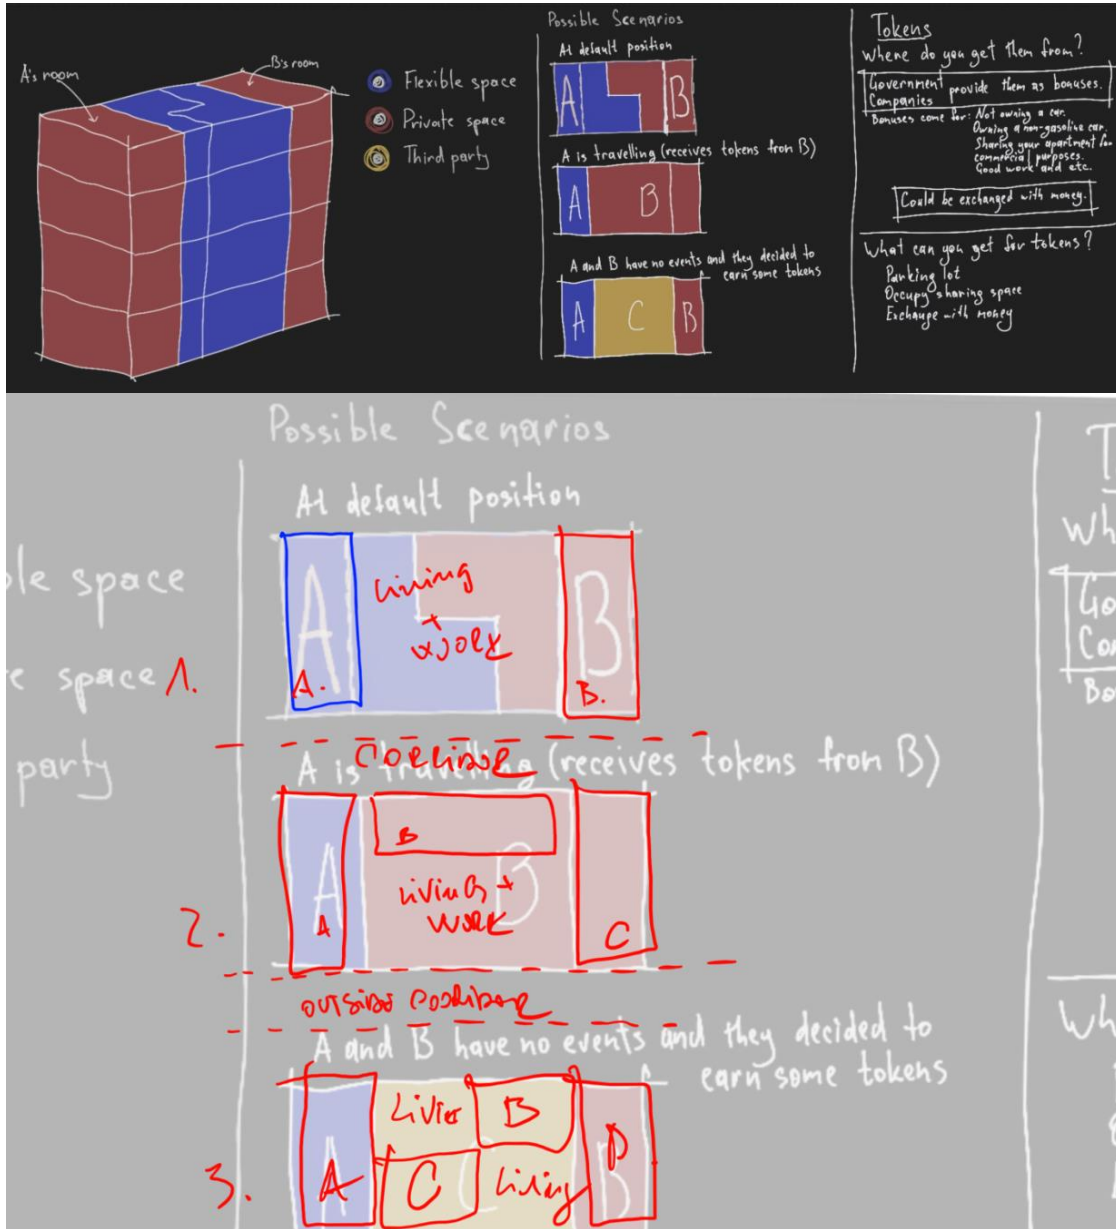 A's room
B's room
Flexible space
Private space
Third party
Possible Scenarios
At default position
A
B
A is travelling (receives tokens from B)
A
B
A and B have no events and they decided to
earn some tokens
A
C
B
Tokens
Where do you get them from?
Government
Companies
provide them as bonuses.
Bonuses come for: Not owning a car.
Owning a non-gasoline car.
Sharing your apartment for
commercial purposes.
Good work and etc.
Could be exchanged with money.
What can you get for tokens?
Parking lot
Occupy sharing space
Exchange with money
Possible Scenarios
At default position
space
space
party
1.
A
A.
Living
+
work
B
B.
corridor
A is travelling (receives tokens from B)
2.
A
A
B
B
Living +
work
C
outside corridor
A and B have no events and they decided to
earn some tokens
3.
A
A
B
C
C
Living
D
B
T
Wh
Go
Com
Bo
Wh